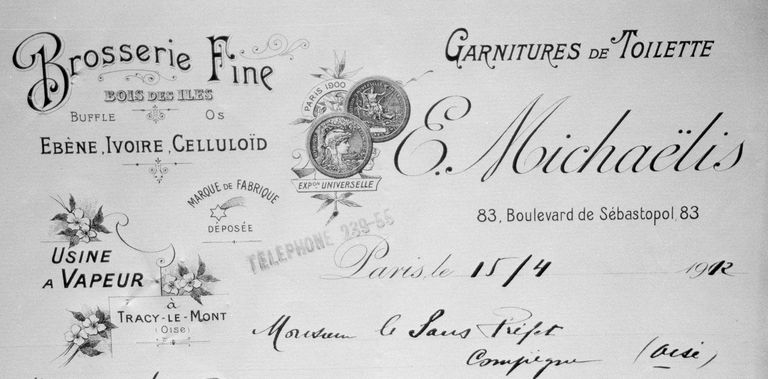 Brosserie Fine
BOIS DES ILES
BUFFLE OS
EBÈNE, IVOIRE, CELLULOÏD
MARQUE DE FABRIQUE
DÉPOSÉE
USINE
A VAPEUR
à
TRACY-LE-MONT
(OISE)
PARIS 1900
EXPON UNIVERSELLE
GARNITURES DE TOILETTE
E. Michaëlis
83, Boulevard de Sébastopol, 83
TELEPHONE 239-55
Paris, le 15/4 1912
Monsieur le Sous Préfet
Compiègne (Oise)